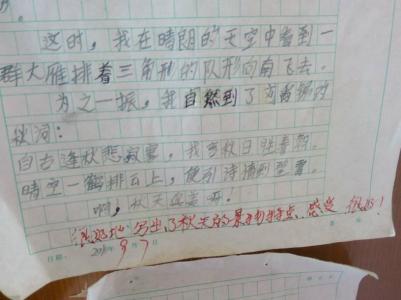 这时，我在晴朗的天空中看到一
群大雁排着三角形的队形向南飞去。
为之一振，我自然到了刘禹锡的
秋词：
自古逢秋悲寂寥，我言秋日胜春朝。
晴空一鹤排云上，便引诗情到碧霄。
啊，秋天真美啊。
写出了秋天的景物特点 感受 很好！
日期：20 9月7